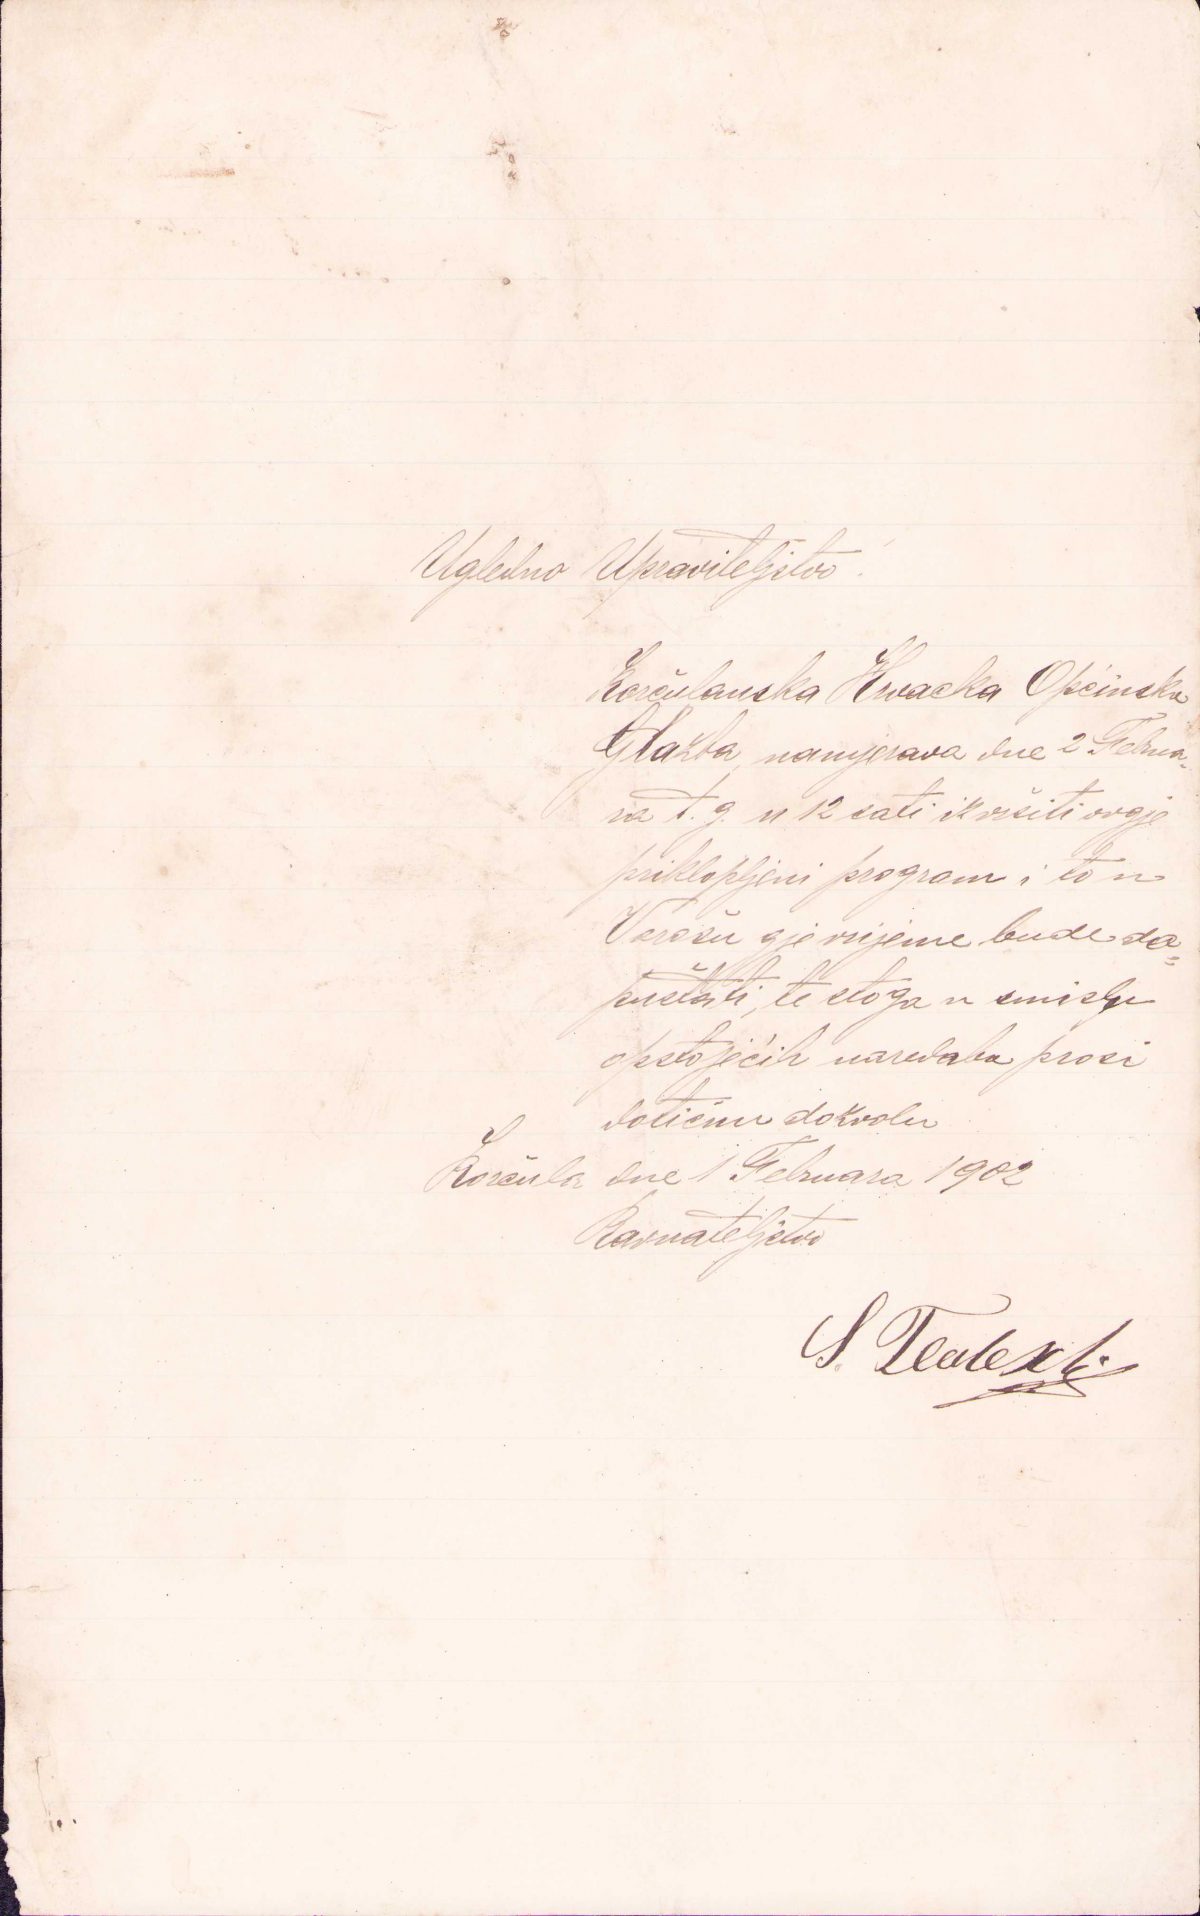 Ugledno Upraviteljstvo!
Korčulanska Hrvacka Općinska
Glazba, namjerava dne 2 Februa-
ra t. g. u 12 sati izvršiti ovgje
priklopljeni program i to u
Varošu gje vrijeme bude do=
puštati, te stoga u smislu
opstojećih naredaba prosi
dotičnu dozvolu
Korčula dne 1 Februara 1902
Ravnateljstvo
S.